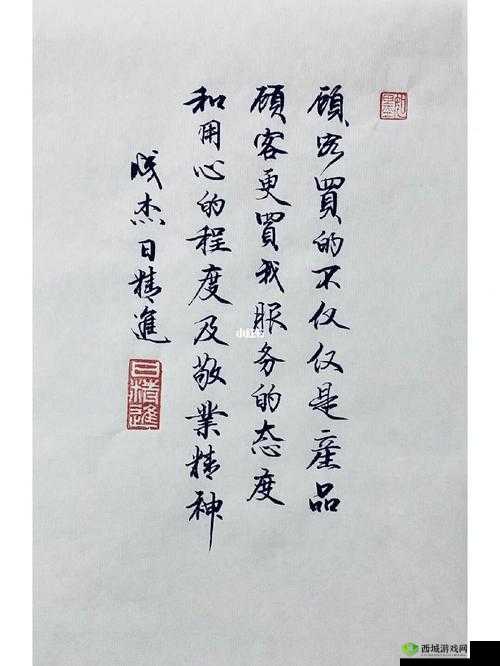 顾客買的不仅仅是産品
顾客更買我服务的态度
和用心的程度及敬業精神
成杰日精進
日精進
小红书
西城游戏网